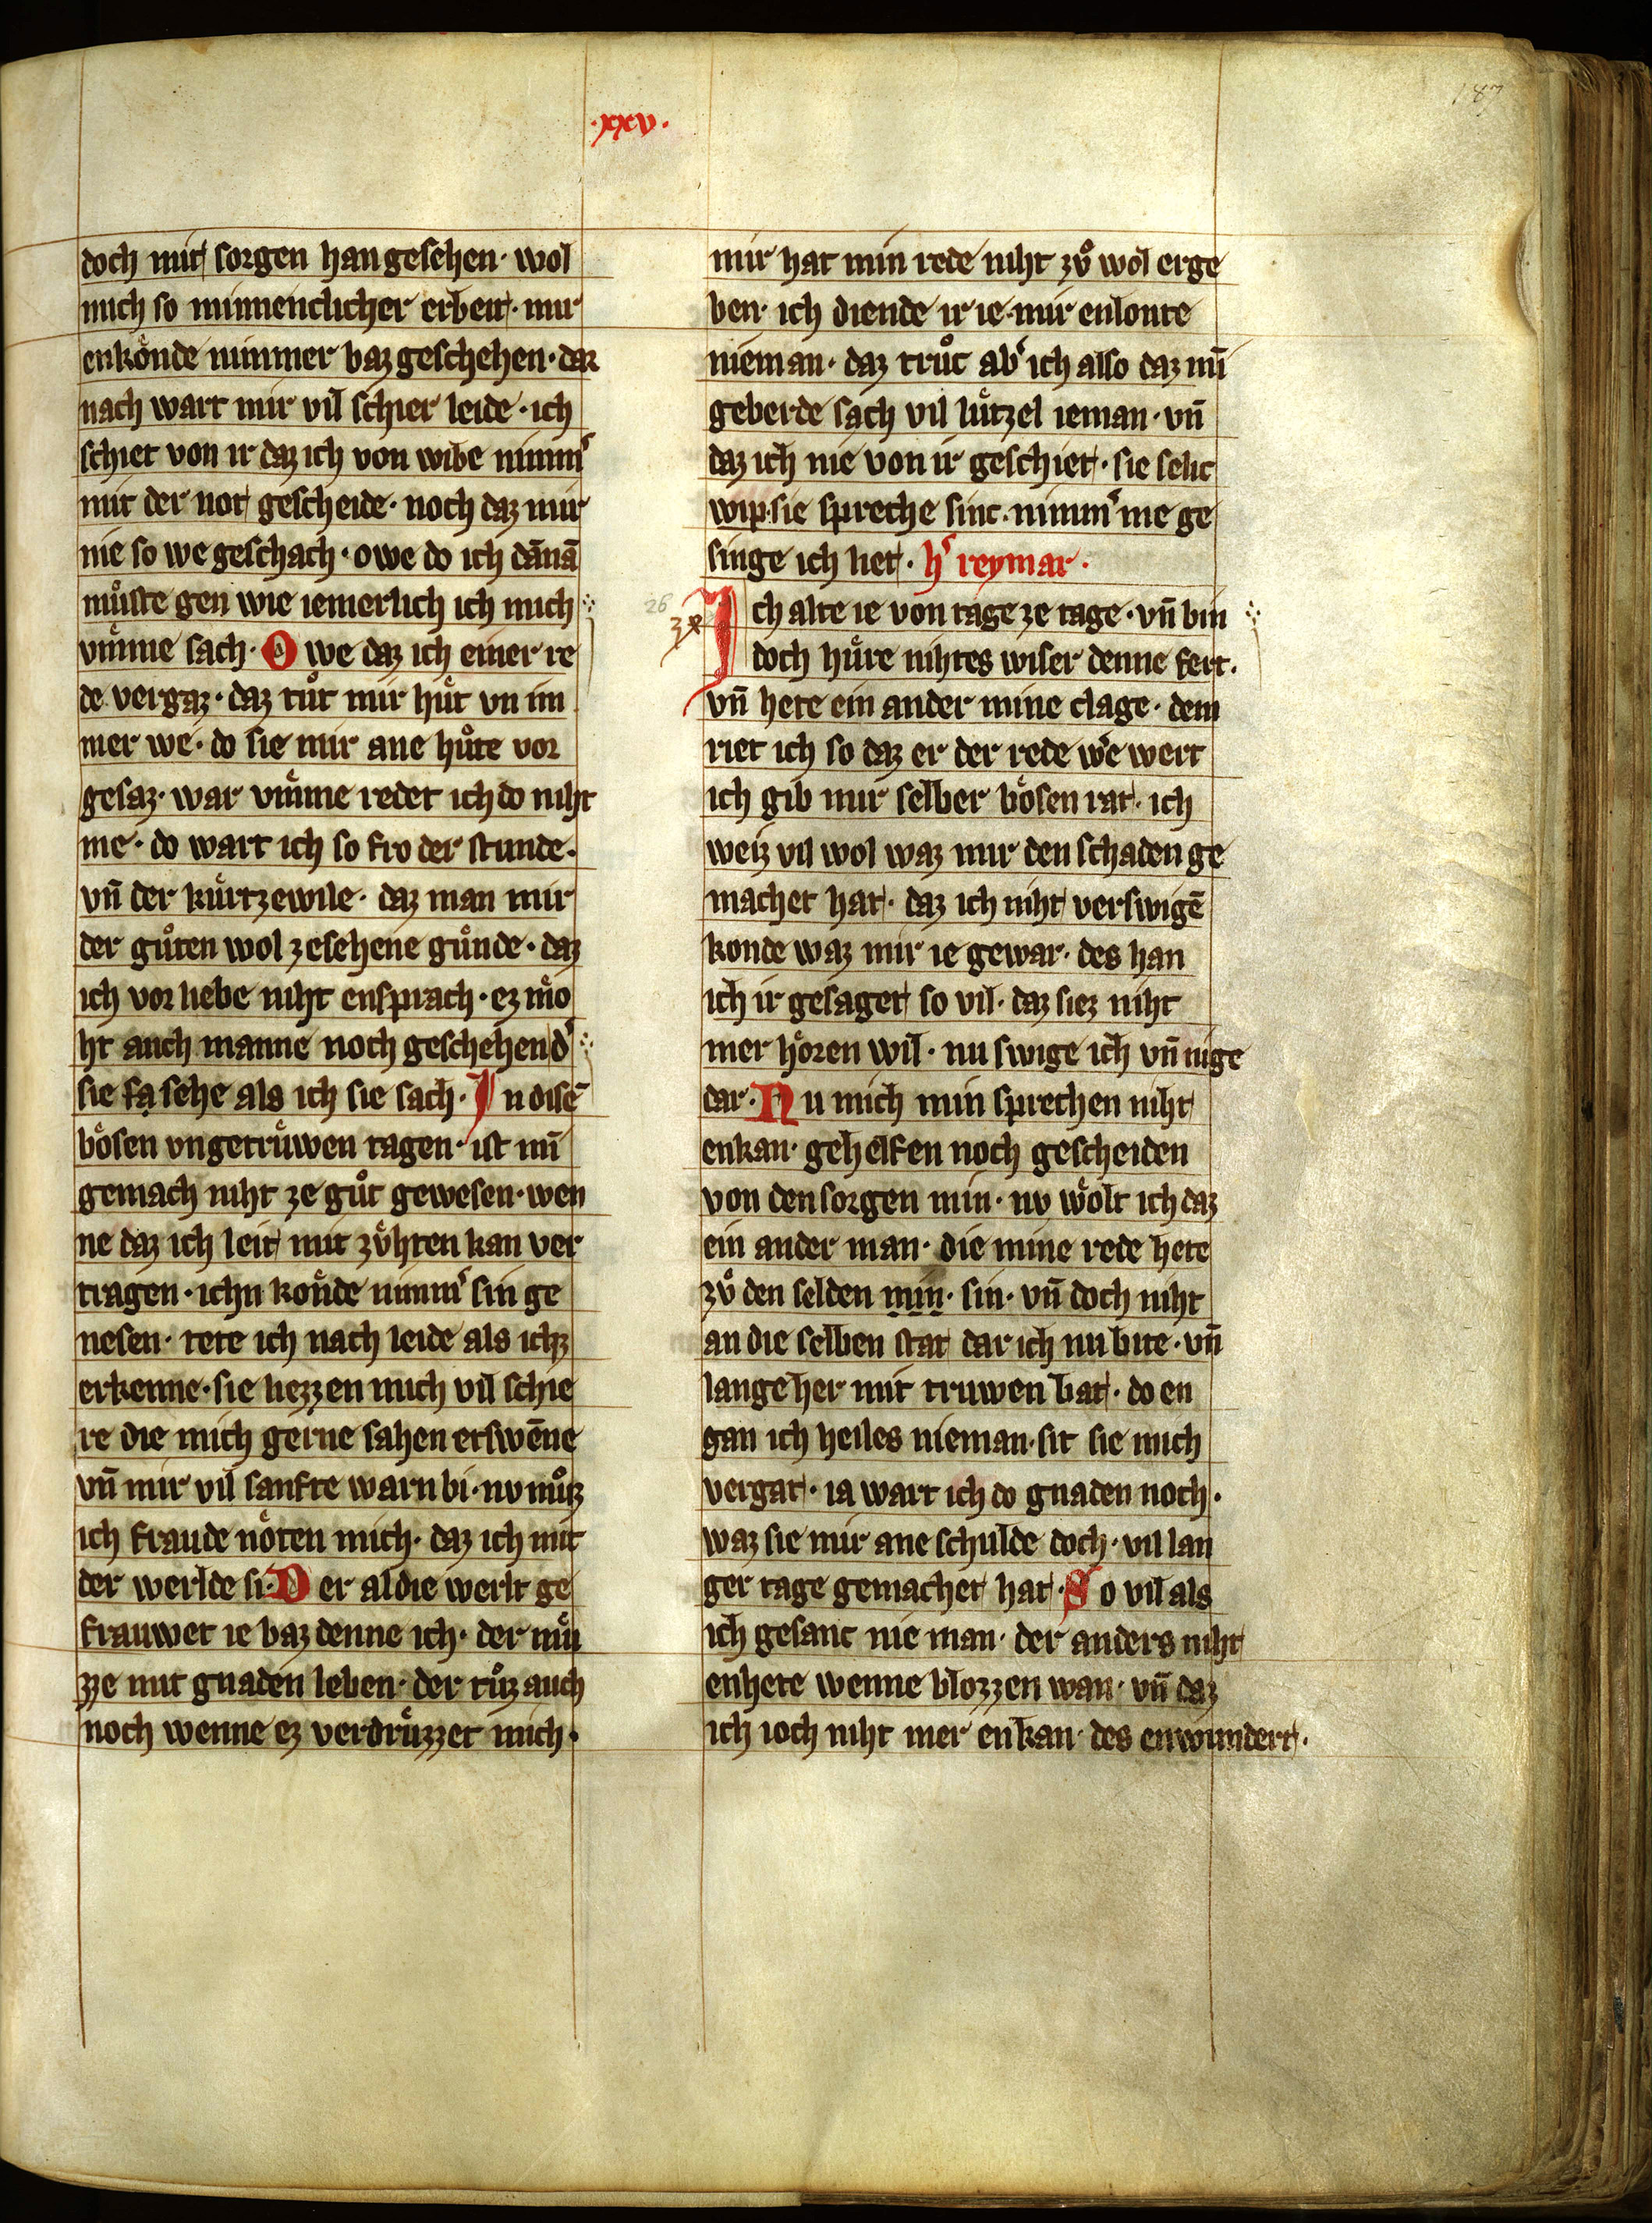 .xxv.
187
doch mit sorgen han gesehen· wol
mich so minnenclicher erbeit· mir
enkoͤnde nimmer baz geschehen· dar
nach wart mir vil schier leide· ich
schiet von ir daz ich von wibe nimm̾
mit der not gescheide· noch daz mir
nie so we geschach· owe do ich dānā
muͤste gen wie iemerlich ich mich
vmme sach· O we daz ich einer re
de vergaz· daz tuͦt mir huͤt vn im
mer we· do sie mir ane huͦte vor
gesaz· war vmme redet ich do niht
me· do wart ich so fro der stunde·
vn̄ der kuͤrtzewile· daz man mir
der guͦten wol zesehene guͤnde· daz
ich vor liebe niht ensprach· ez moͤ
ht auch manne noch geschehen d̾
sie sa sehe als ich sie sach· In disē
boͤsen vngetruͤwen tagen· ist mī
gemach niht ze guͦt gewesen· wen
ne daz ich leit mit zuͤhten kan ver
tragen· ichn koͤnde nimm̾ sin ge
nesen· tete ich nach leide als ichz
erkenne· sie liezzen mich vil schie
re die mich gerne sahen erswēne
vn̄ mir vil sanfte warn bi· nv muͦz
ich fraude noͤten mich· daz ich mit
der werlde si· D er al die werlt ge
frauwet ie baz denne ich· der muͤ
zze mit gnaden leben· der tuͦz auch
noch wenne ez verdruͤzzet mich·
mir hat min rede niht zuͦ wol erge
ben· ich diende ir ie· mir enlonte
nieman· daz truͦc ab̾ ich also daz mī
geberde sach vil luͤtzel ieman· vn̄
daz ich nie von ir geschiet· sie selic
wip· sie spreche sinc· nimm̾ me ge
singe ich liet· h̾ reymar·
26
I ch alte ie von tage ze tage· vn̄ bin
doch huͤre nihtes wiser denne fert·
vn̄ hete ein ander mine clage· dem
riet ich so daz er der rede we̾ wert
ich gib mir selber boͤsen rat· ich
weiz vil wol waz mir den schaden ge
machet hat· daz ich niht verswigē
konde waz mir ie gewar· des han
ich ir gesaget so vil· daz siez niht
mer hoͤren wil· nu swige ich vn̄ nige
dar· N u mich min sprechen niht
enkan· gehelfen noch gescheiden
von den sorgen min· nv woͤlt ich daz
ein ander man· die mine rede hete
zuͦ den selden min· sin· vn̄ doch niht
an die selben stat dar ich nu bite· vn̄
lange her mit truwen bat· do en
gan ich heiles nieman· sit sie mich
vergat· ia wart ich do gnaden noch·
waz sie mir ane schulde doch· vil lan
ger tage gemachet hat· S o vil als
ich gesanc nie man· der anders niht
enhete wenne blozzen wan· vn̄ daz
ich ioch niht mer enkan· des enwundert·